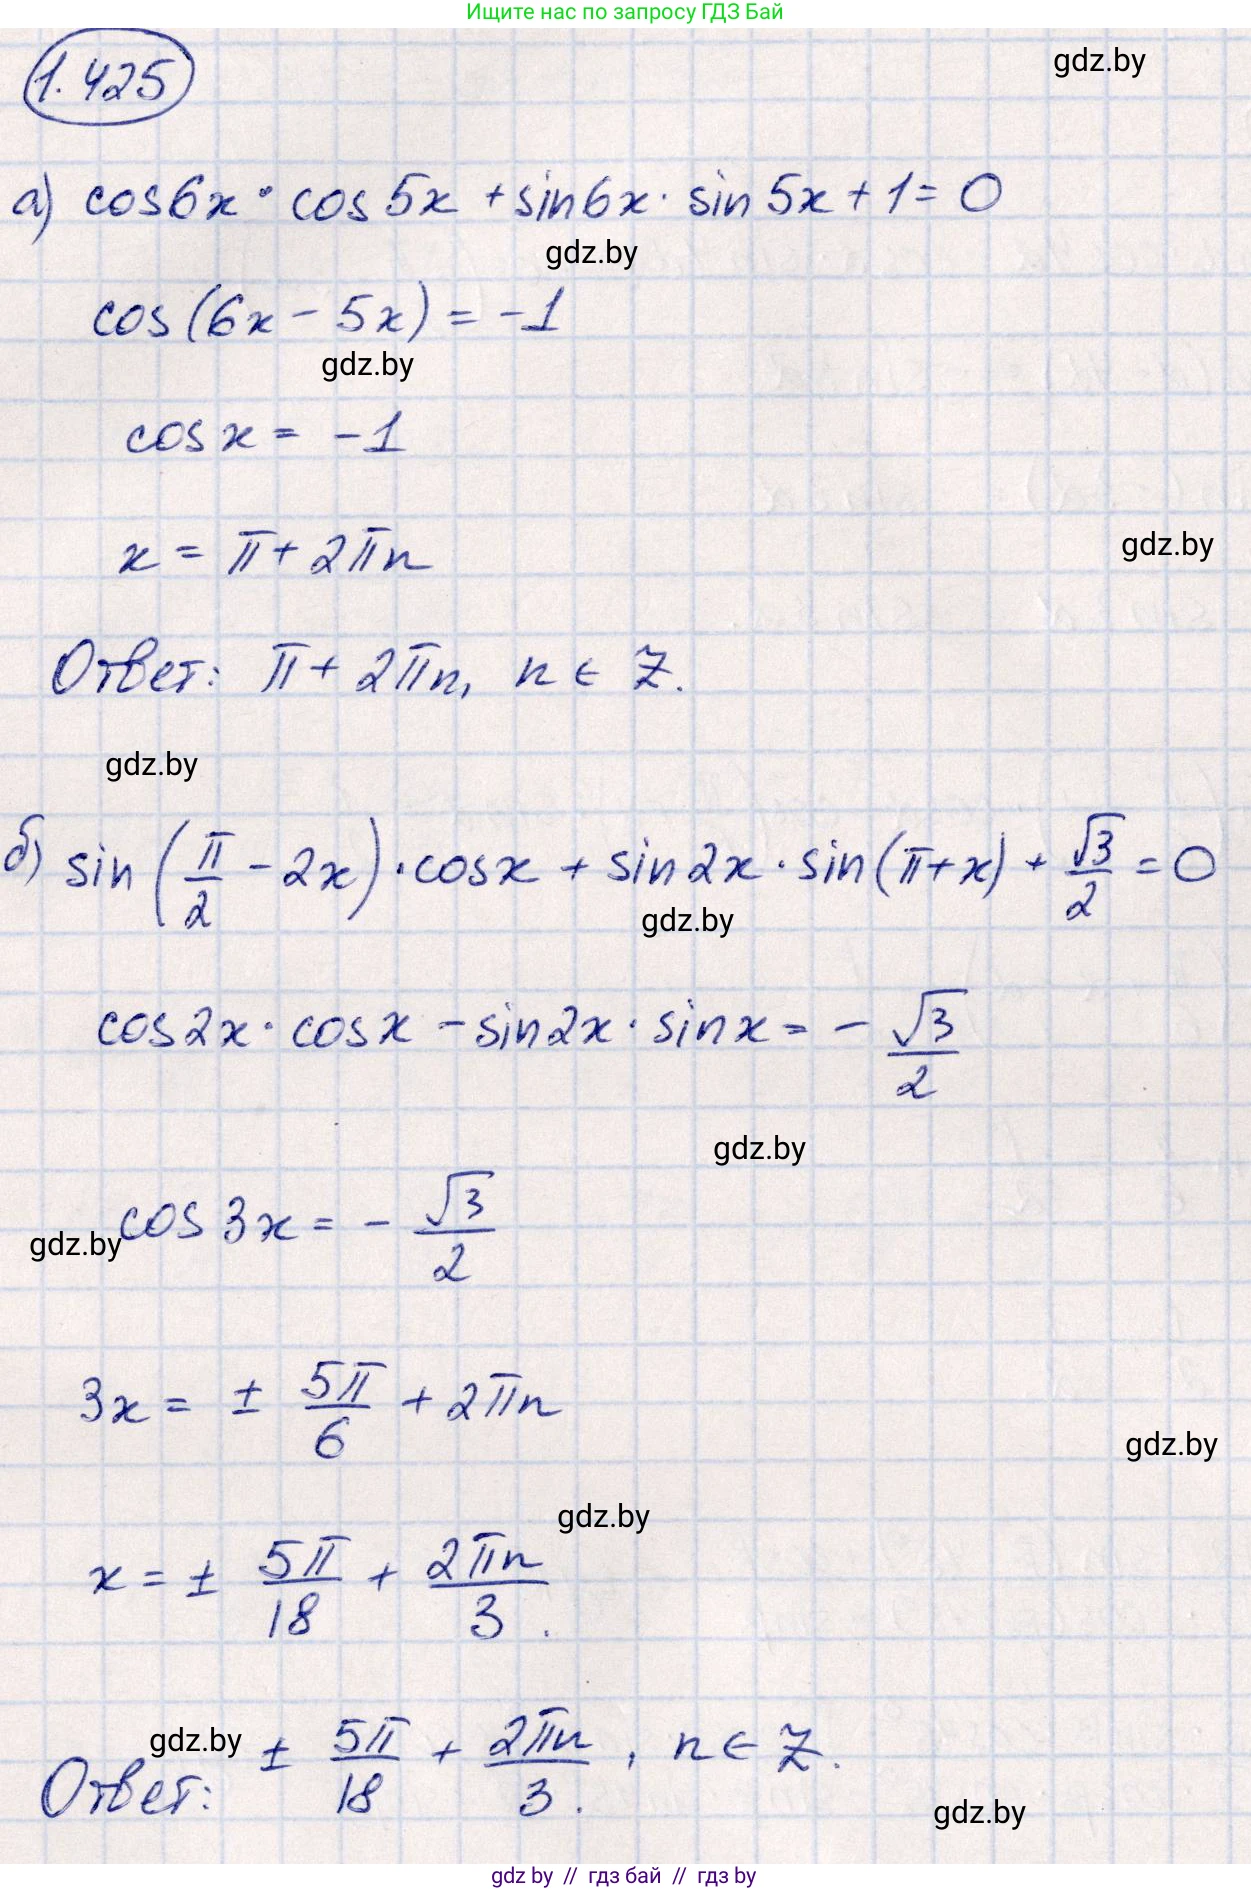 Ищите нас по запросу ГДЗ Бай
1.425
gdz.by
а) cos6x · cos5x + sin6x · sin5x + 1 = 0
gdz.by
cos(6x - 5x) = -1
gdz.by
cosx = -1
gdz.by
x = π + 2πn
Ответ: π + 2πn, n ∈ Z.
gdz.by
б) sin(π/2 - 2x) · cosx + sin2x · sin(π+x) + √3/2 = 0
gdz.by
cos2x · cosx - sin2x · sinx = - √3/2
gdz.by
cos3x = - √3/2
gdz.by
3x = ± 5π/6 + 2πn
gdz.by
gdz.by
x = ± 5π/18 + 2πn/3.
gdz.by
Ответ: ± 5π/18 + 2πn/3., n ∈ Z.
gdz.by
gdz by // гдз бай // гдз by